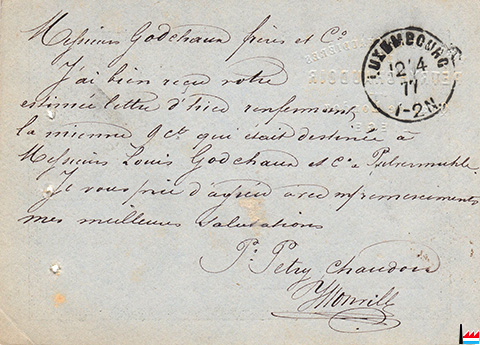 Messieurs Godchaux frères et Cº
J'ai bien reçu votre
estimée lettre d'hier renfermant
la mienne 9 ct qui était destinée à
Messieurs Louis Godchaux et Cº à Pulvermuhle.
Je vous prie d'agréer avec mes remerciments
mes meilleures salutations
P. Petry Chaudoir
LUXEMBOURG
12 4
77
1-2N.